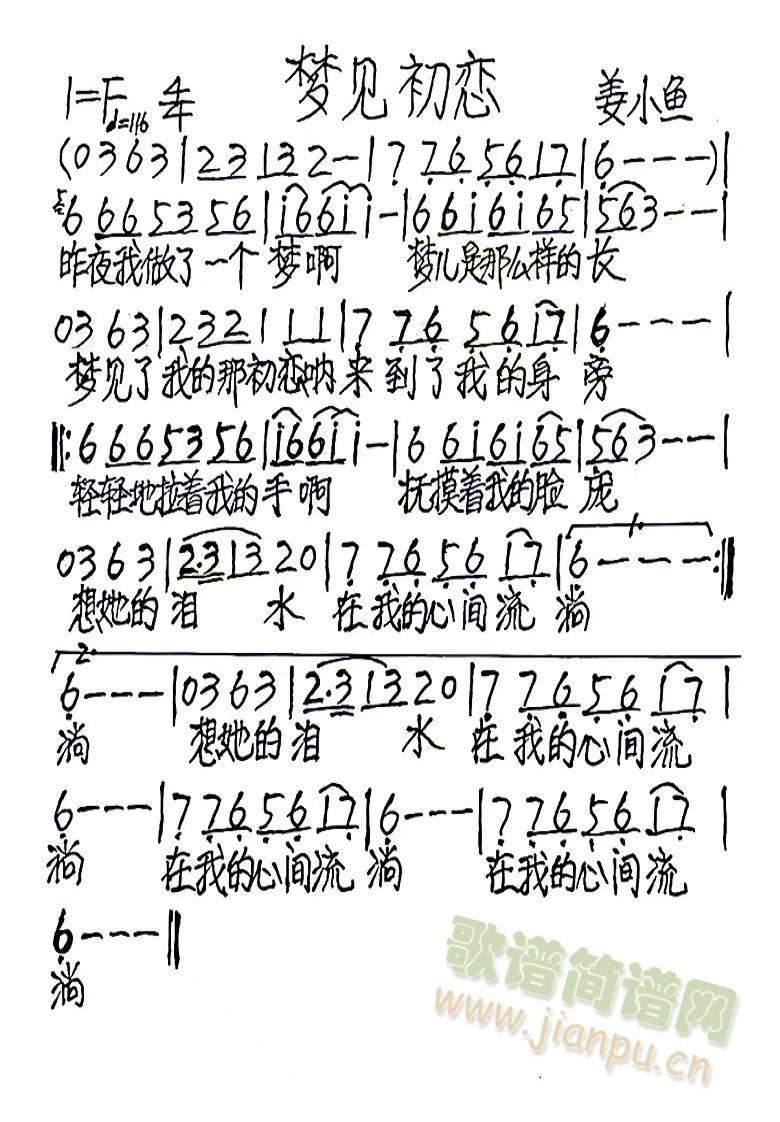 梦见初恋
1=F 4/4 ♩=116 姜小鱼
(0363|23132-|776561 7|6---)|
6 66535 6|i66i i-|66i6i65|563--|
昨夜我做了一个梦啊 梦儿是那么样的长
0363|2321 11|7 76 5617|6---|
梦见了我的那初恋呐来到了我的身旁
‖:66653 56|i66i i-|6 6i6i65|563--|
轻轻地拉着我的手啊 抚摸着我的脸庞
0363|2·31320|7 76 56 17|6---:‖
想她的泪 水 在我的心间流淌
2.
6---|0363|2·31320|7 76 56 17|
淌 想她的泪 水 在我的心间流
6---|7 76 56 17|6---|7 76 56 17|
淌 在我的心间流淌 在我的心间流
6---‖
淌
歌谱简谱网
www.jianpu.cn